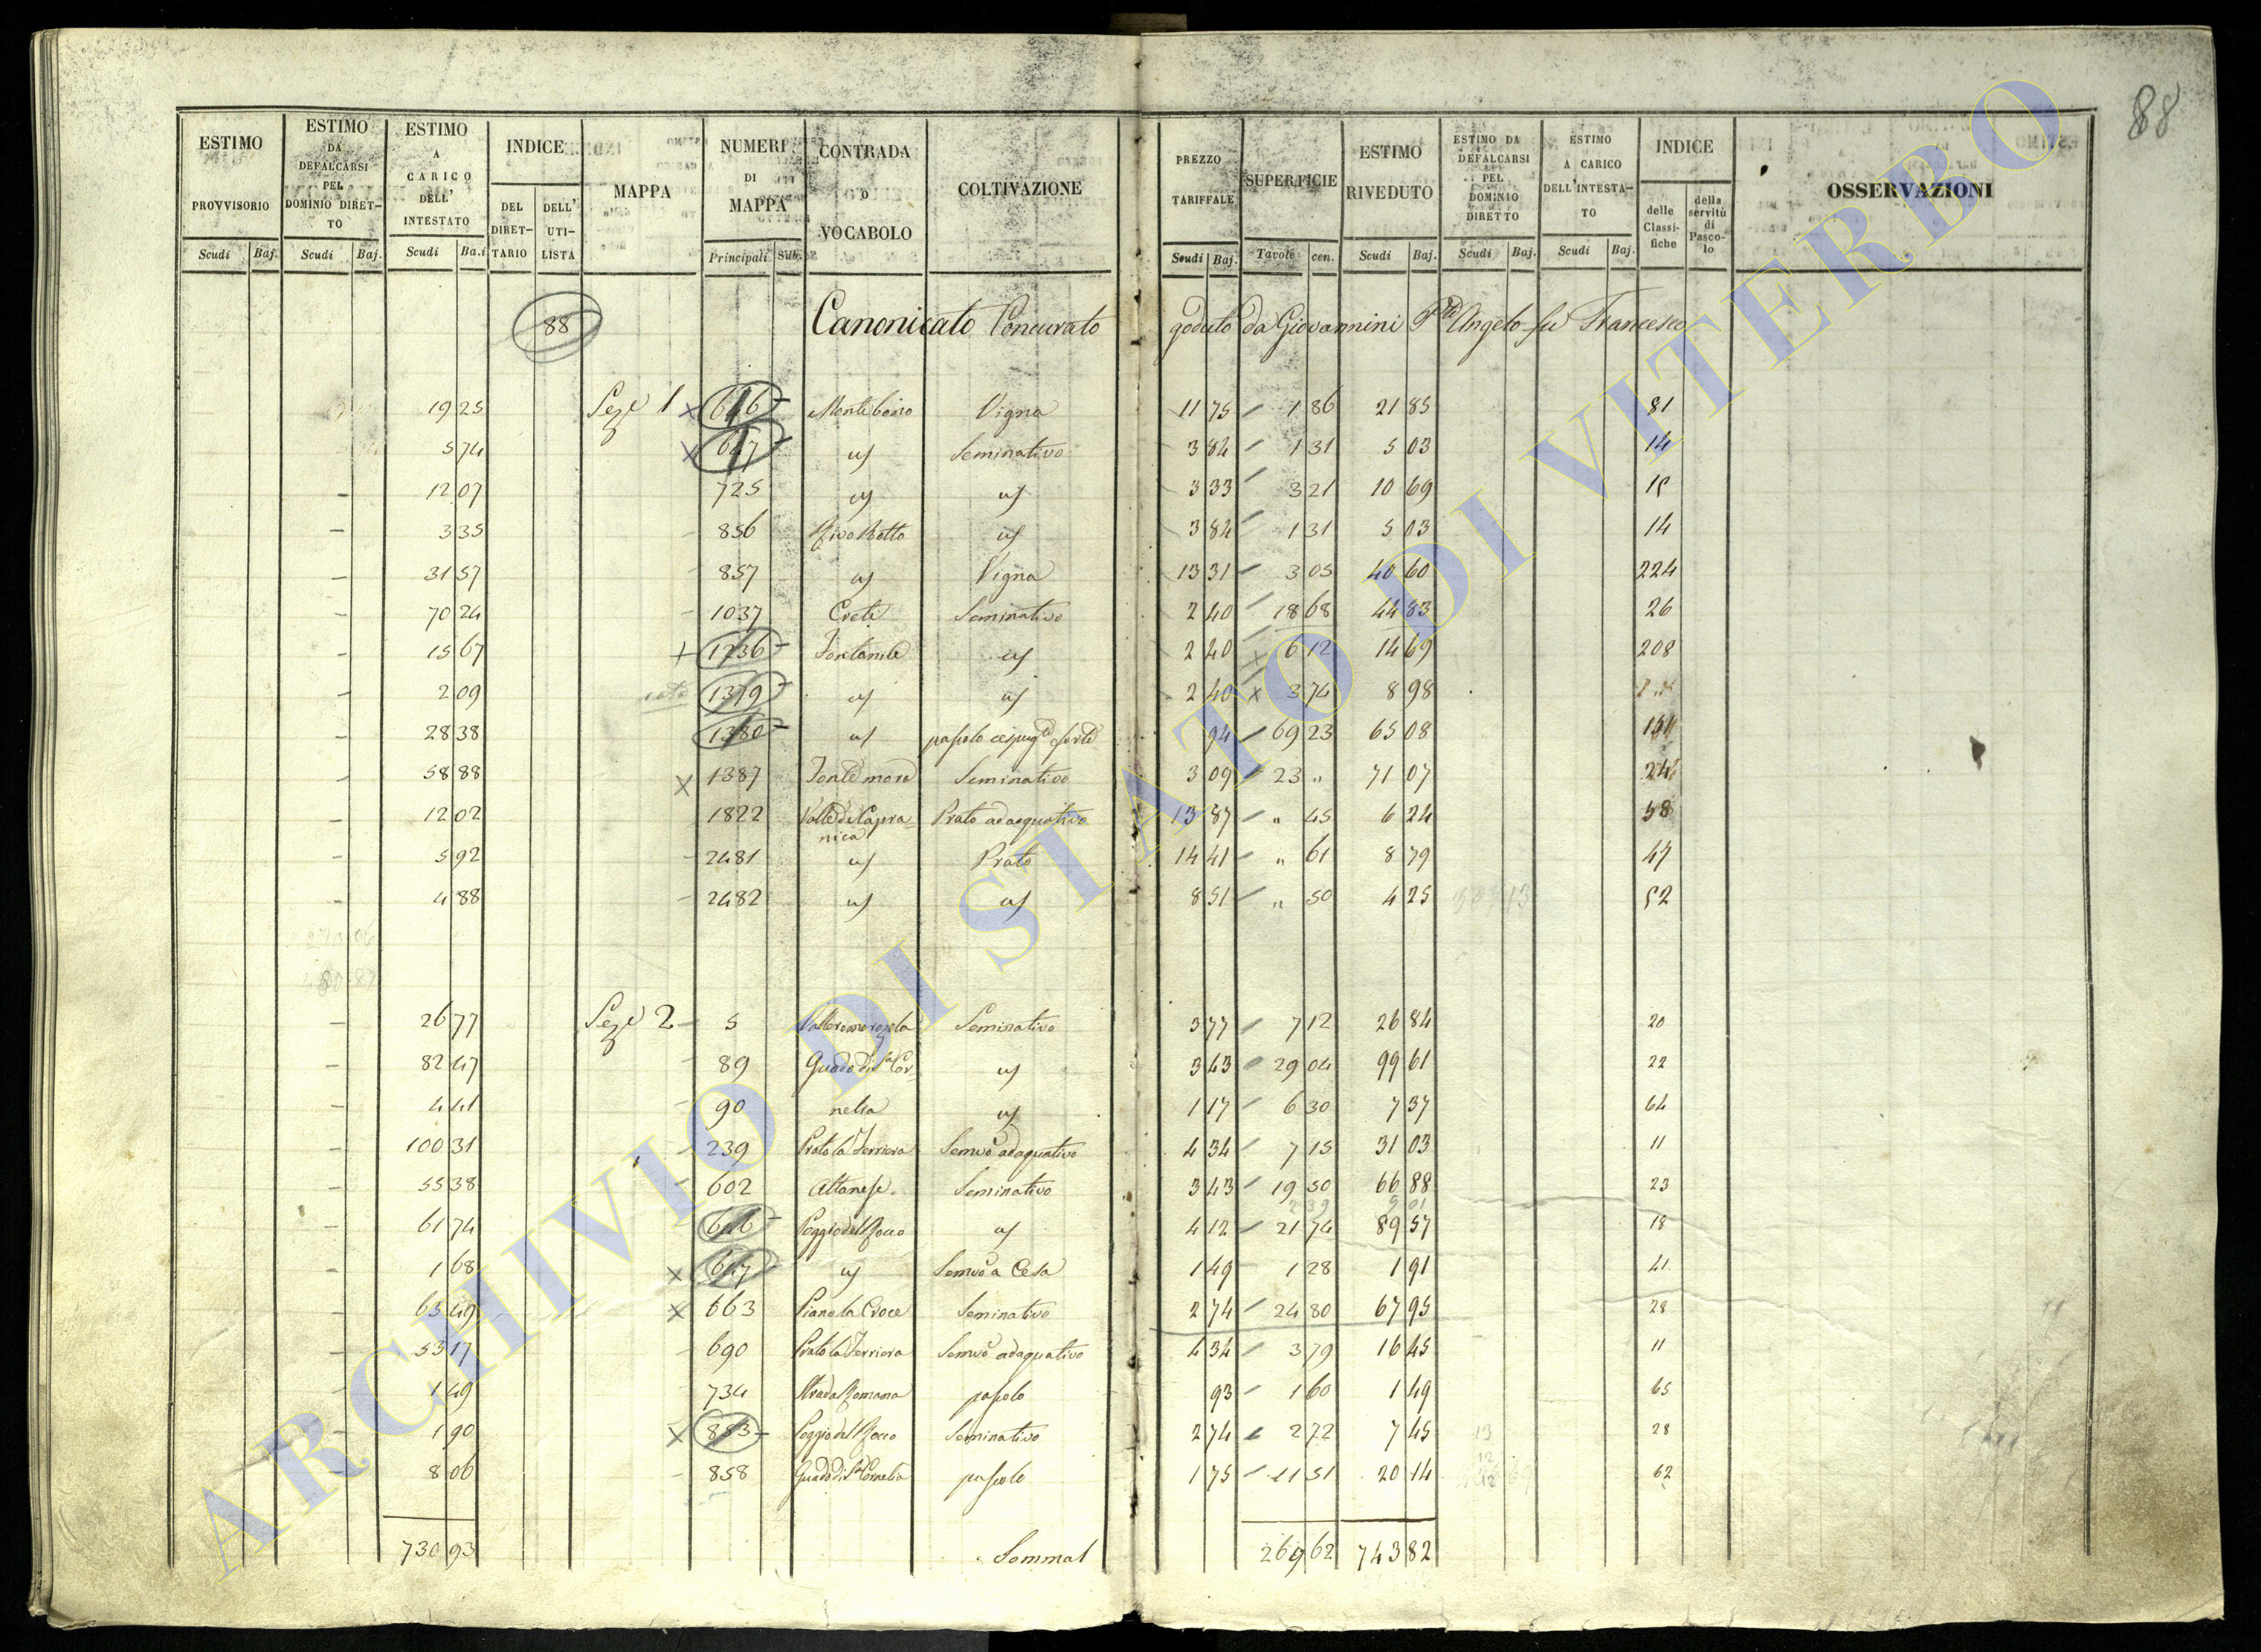 88
ESTIMO PROVVISORIO | ESTIMO DA DEFALCARSI PEL DOMINIO DIRET-TO | ESTIMO A CARICO DELL' INTESTATO | INDICE DEL DIRET-TARIO | DELL' UTI-LISTA | MAPPA | NUMERI DI MAPPA | CONTRADA O VOCABOLO | COLTIVAZIONE | PREZZO TARIFFALE | SUPERFICIE | ESTIMO RIVEDUTO | ESTIMO DA DEFALCARSI PEL DOMINIO DIRETTO | ESTIMO A CARICO DELL'INTESTA-TO | INDICE delle Classi-fiche | della servitù di Pasco-lo | OSSERVAZIONI
Scudi Baj. Scudi Baj. Scudi Ba.i Principali Sub. Scudi Baj. Tavole cen. Scudi Baj. Scudi Baj. Scudi Baj.
88 Canonicato Concurato goduto da Giovannini Angelo fu Francesco
19 25 Sez.e 1 x 646 Vigna 11 75 1 86 21 85 81
5 74 x 647 Seminativo 3 84 1 31 5 03 14
12 07 725 3 33 3 21 10 69 15
3 35 856 Rivo Rotto 3 84 1 31 5 03 14
31 57 857 Vigna 13 31 3 05 40 60 224
70 24 1037 Crete Seminativo 2 40 18 68 44 83 26
15 67 + 1236 Fontanile 2 40 6 12 14 69 208
2 09 1379 2 40 x 3 74 8 98
28 38 1380 94 69 23 65 08
58 88 x 1387 Seminativo 3 09 23 " 71 07
12 02 1822 Valle di Capra=nica Prato adaequativo 13 87 " 45 6 24 58
5 92 2481 Prato 14 41 " 61 8 79 47
4 88 2482 8 51 " 50 4 25 52
26 77 Sez.e 2 5 Seminativo 3 77 7 12 26 84 20
82 47 89 Guado di S.a Cor= 3 43 29 04 99 61 22
4 41 90 nelia 1 17 6 30 7 37 64
100 31 239 Prato la Ferriera Semivo adaquativo 4 34 7 15 31 03 11
55 38 602 Altanese Seminativo 3 43 19 50 66 88 23
61 74 646 Poggio del Rocco 4 12 21 74 89 57 18
1 68 x 647 Semivo a Cesa 1 49 1 28 1 91 41
65 49 x 663 Piano la Croce Seminativo 2 74 24 80 67 95 28
53 17 690 Prato la Ferriera Semivo adaquativo 4 34 3 79 16 45 11
1 49 734 Strada Romana pascolo 93 1 60 1 49 65
1 90 x 883 Poggio del Rocco Seminativo 2 74 2 72 7 45 28
8 06 858 Guado di S.a Cornelia pascolo 1 75 11 51 20 14 62
730 93 Somma 269 62 743 82
ARCHIVIO DI STATO DI VITERBO